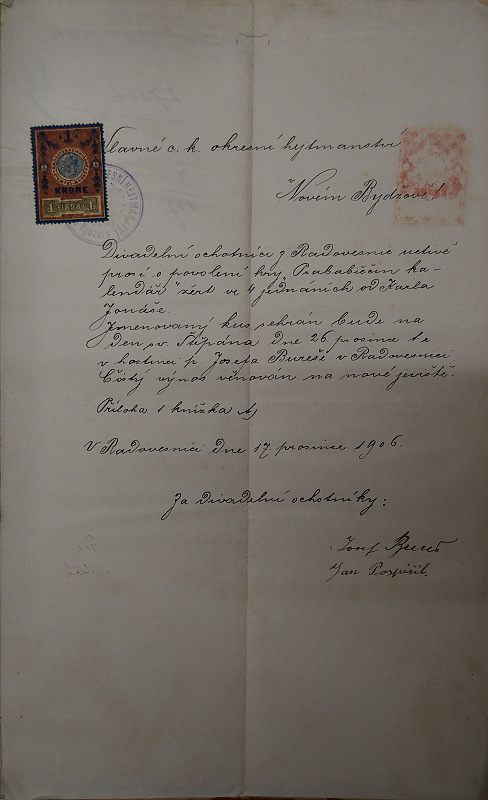 1
KRONE
1 1898 1
Slavné c. k. okresní hytmanství
Novém Bydžově!
Divadelní ochotníci z Radovesnic uctivě
prosí o povolení hry „Prababiččin ka-
lendář" žert ve 4 jednáních od Karla
Jonáše.
Jmenovaný kus sehrán bude na
den sv. Štěpána dne 26 prosince t. r.
v hostinci p. Josefa Bureše v Radovesnici.
Čistý výnos věnován na nové jeviště.
Příloha 1 knížka
V Radovesnici dne 17 prosince 1906.
Za divadelní ochotníky:
Josef Bureš
Jan Pospíšil.